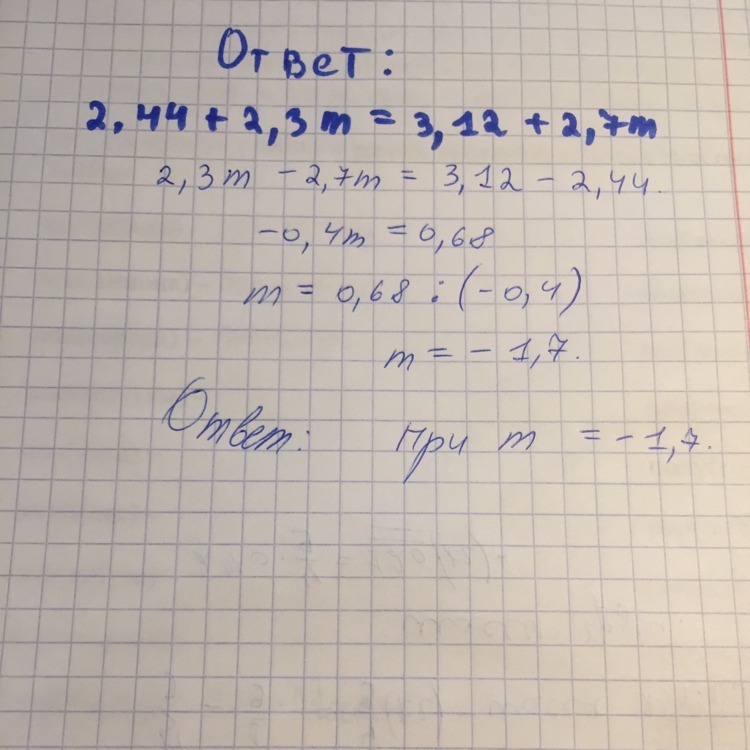 Ответ:
2,44 + 2,3m = 3,12 + 2,7m
2,3m - 2,7m = 3,12 - 2,44.
-0,4m = 0,68
m = 0,68 : (-0,4)
m = - 1,7.
Ответ: при m = - 1,7.